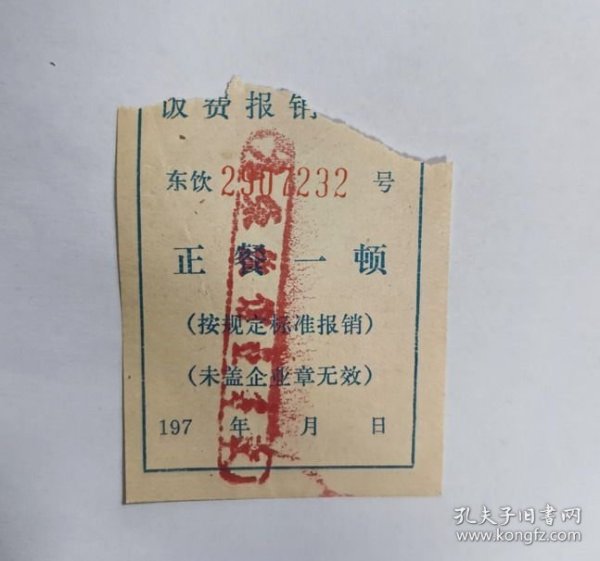 饭费报销
东饮 2907232 号
正餐一顿
(按规定标准报销)
(未盖企业章无效)
197 年 月 日
孔夫子旧书网
www.kongfz.com